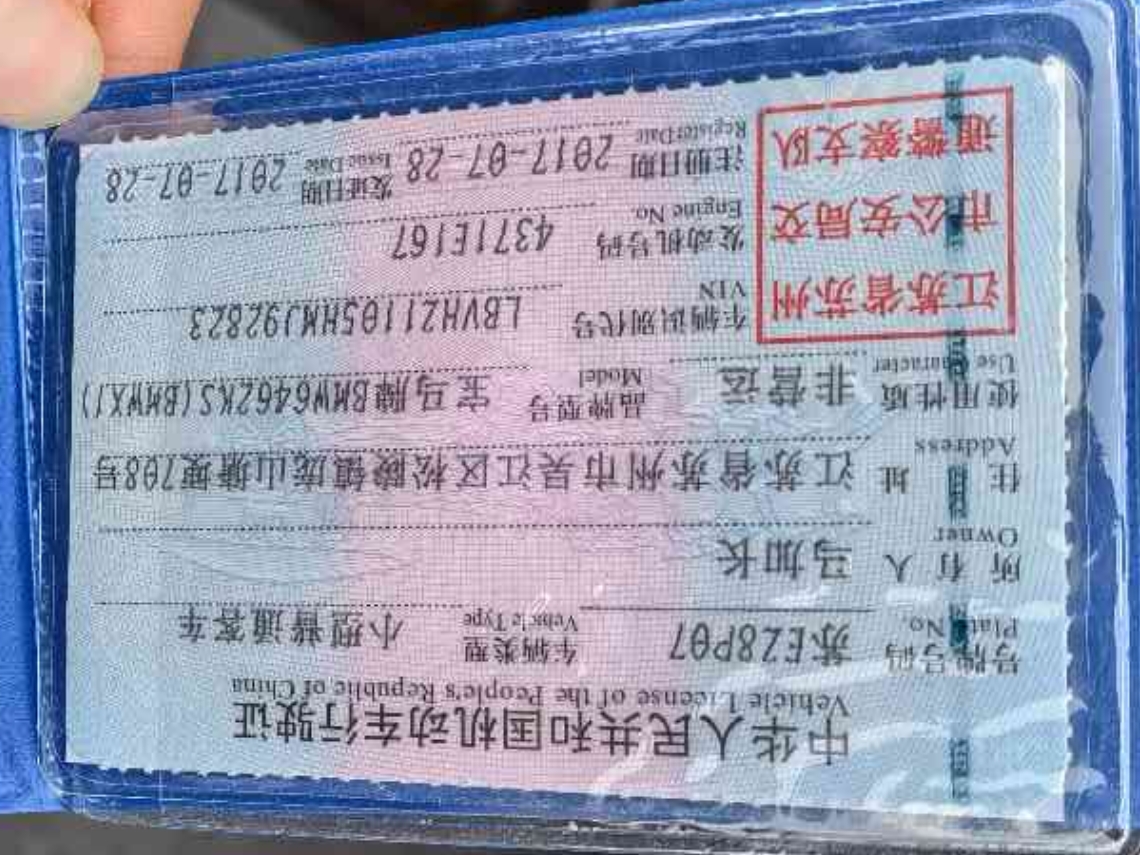 中华人民共和国机动车行驶证
Vehicle License of the People's Republic of China
号牌号码 苏EZ8P07 车辆类型 小型普通客车
Plate No. Vehicle Type
所有人 马加长
Owner
住址 江苏省苏州市吴江区松陵镇庞山塘家708号
Address
使用性质 非营运 品牌型号 宝马牌BMW6462KS(BMWX1)
Use Character Model
江苏省苏州
市公安局交
通警察支队
车辆识别代号 LBVHZ1105HMJ92823
VIN
发动机号码 4371E167
Engine No.
注册日期 2017-07-28 发证日期 2017-07-28
Register Date Issue Date